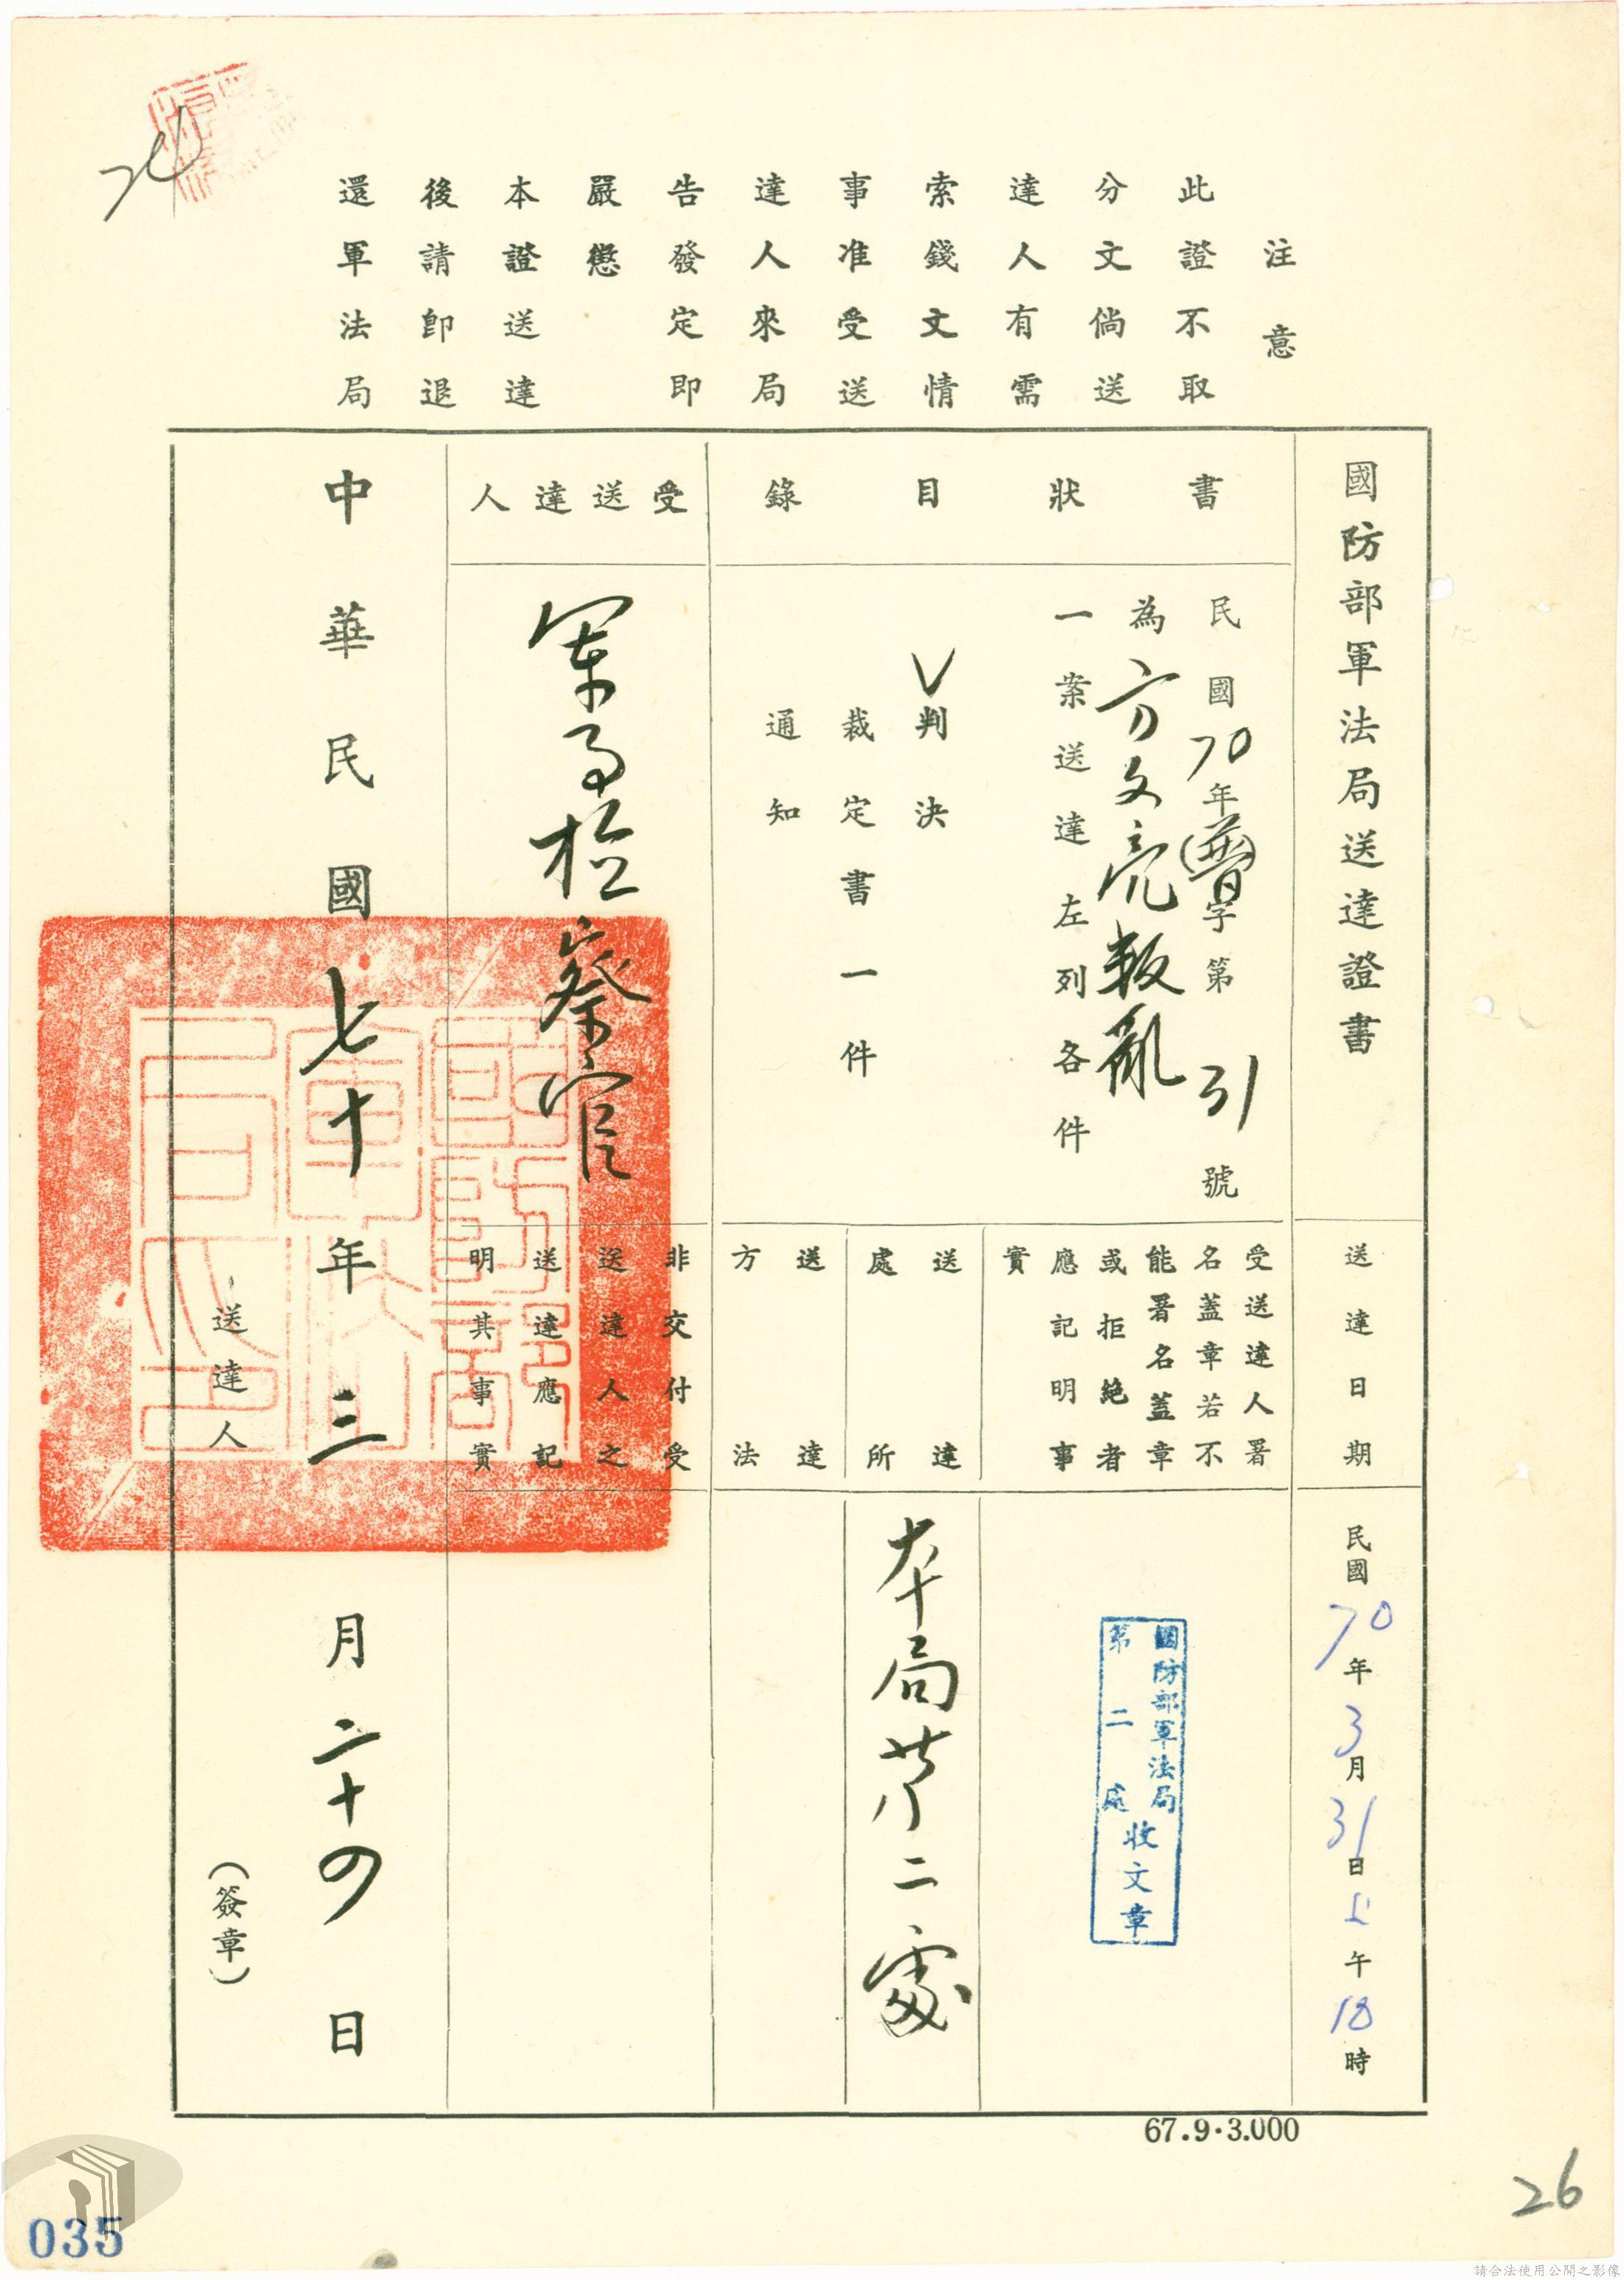 注意
此證不取
分文倘送
達人有需
索錢文情
事准受送
達人來局
告發定即
嚴懲
本證送達
後請卽退
還軍法局
國防部軍法局送達證書
送達日期
民國70年3月31日上午10時
書狀目錄
民國70年(普)字第31號
為方文亮叛亂
一案送達左列各件
V判決
裁定書一件
通知
受送達人署
名蓋章若不
能署名蓋章
或拒絕者
應記明事
實
國防部軍法局
第二處
收文章
送達
處所
本局第二處
送達
方法
受送達人
軍事檢察官
非交付受
送達人之
送達應記
明其事實
中華民國七十年三月二十四日
送達人
(簽章)
國防部
軍法局
67.9.3.000
26
035
請合法使用公開之影像